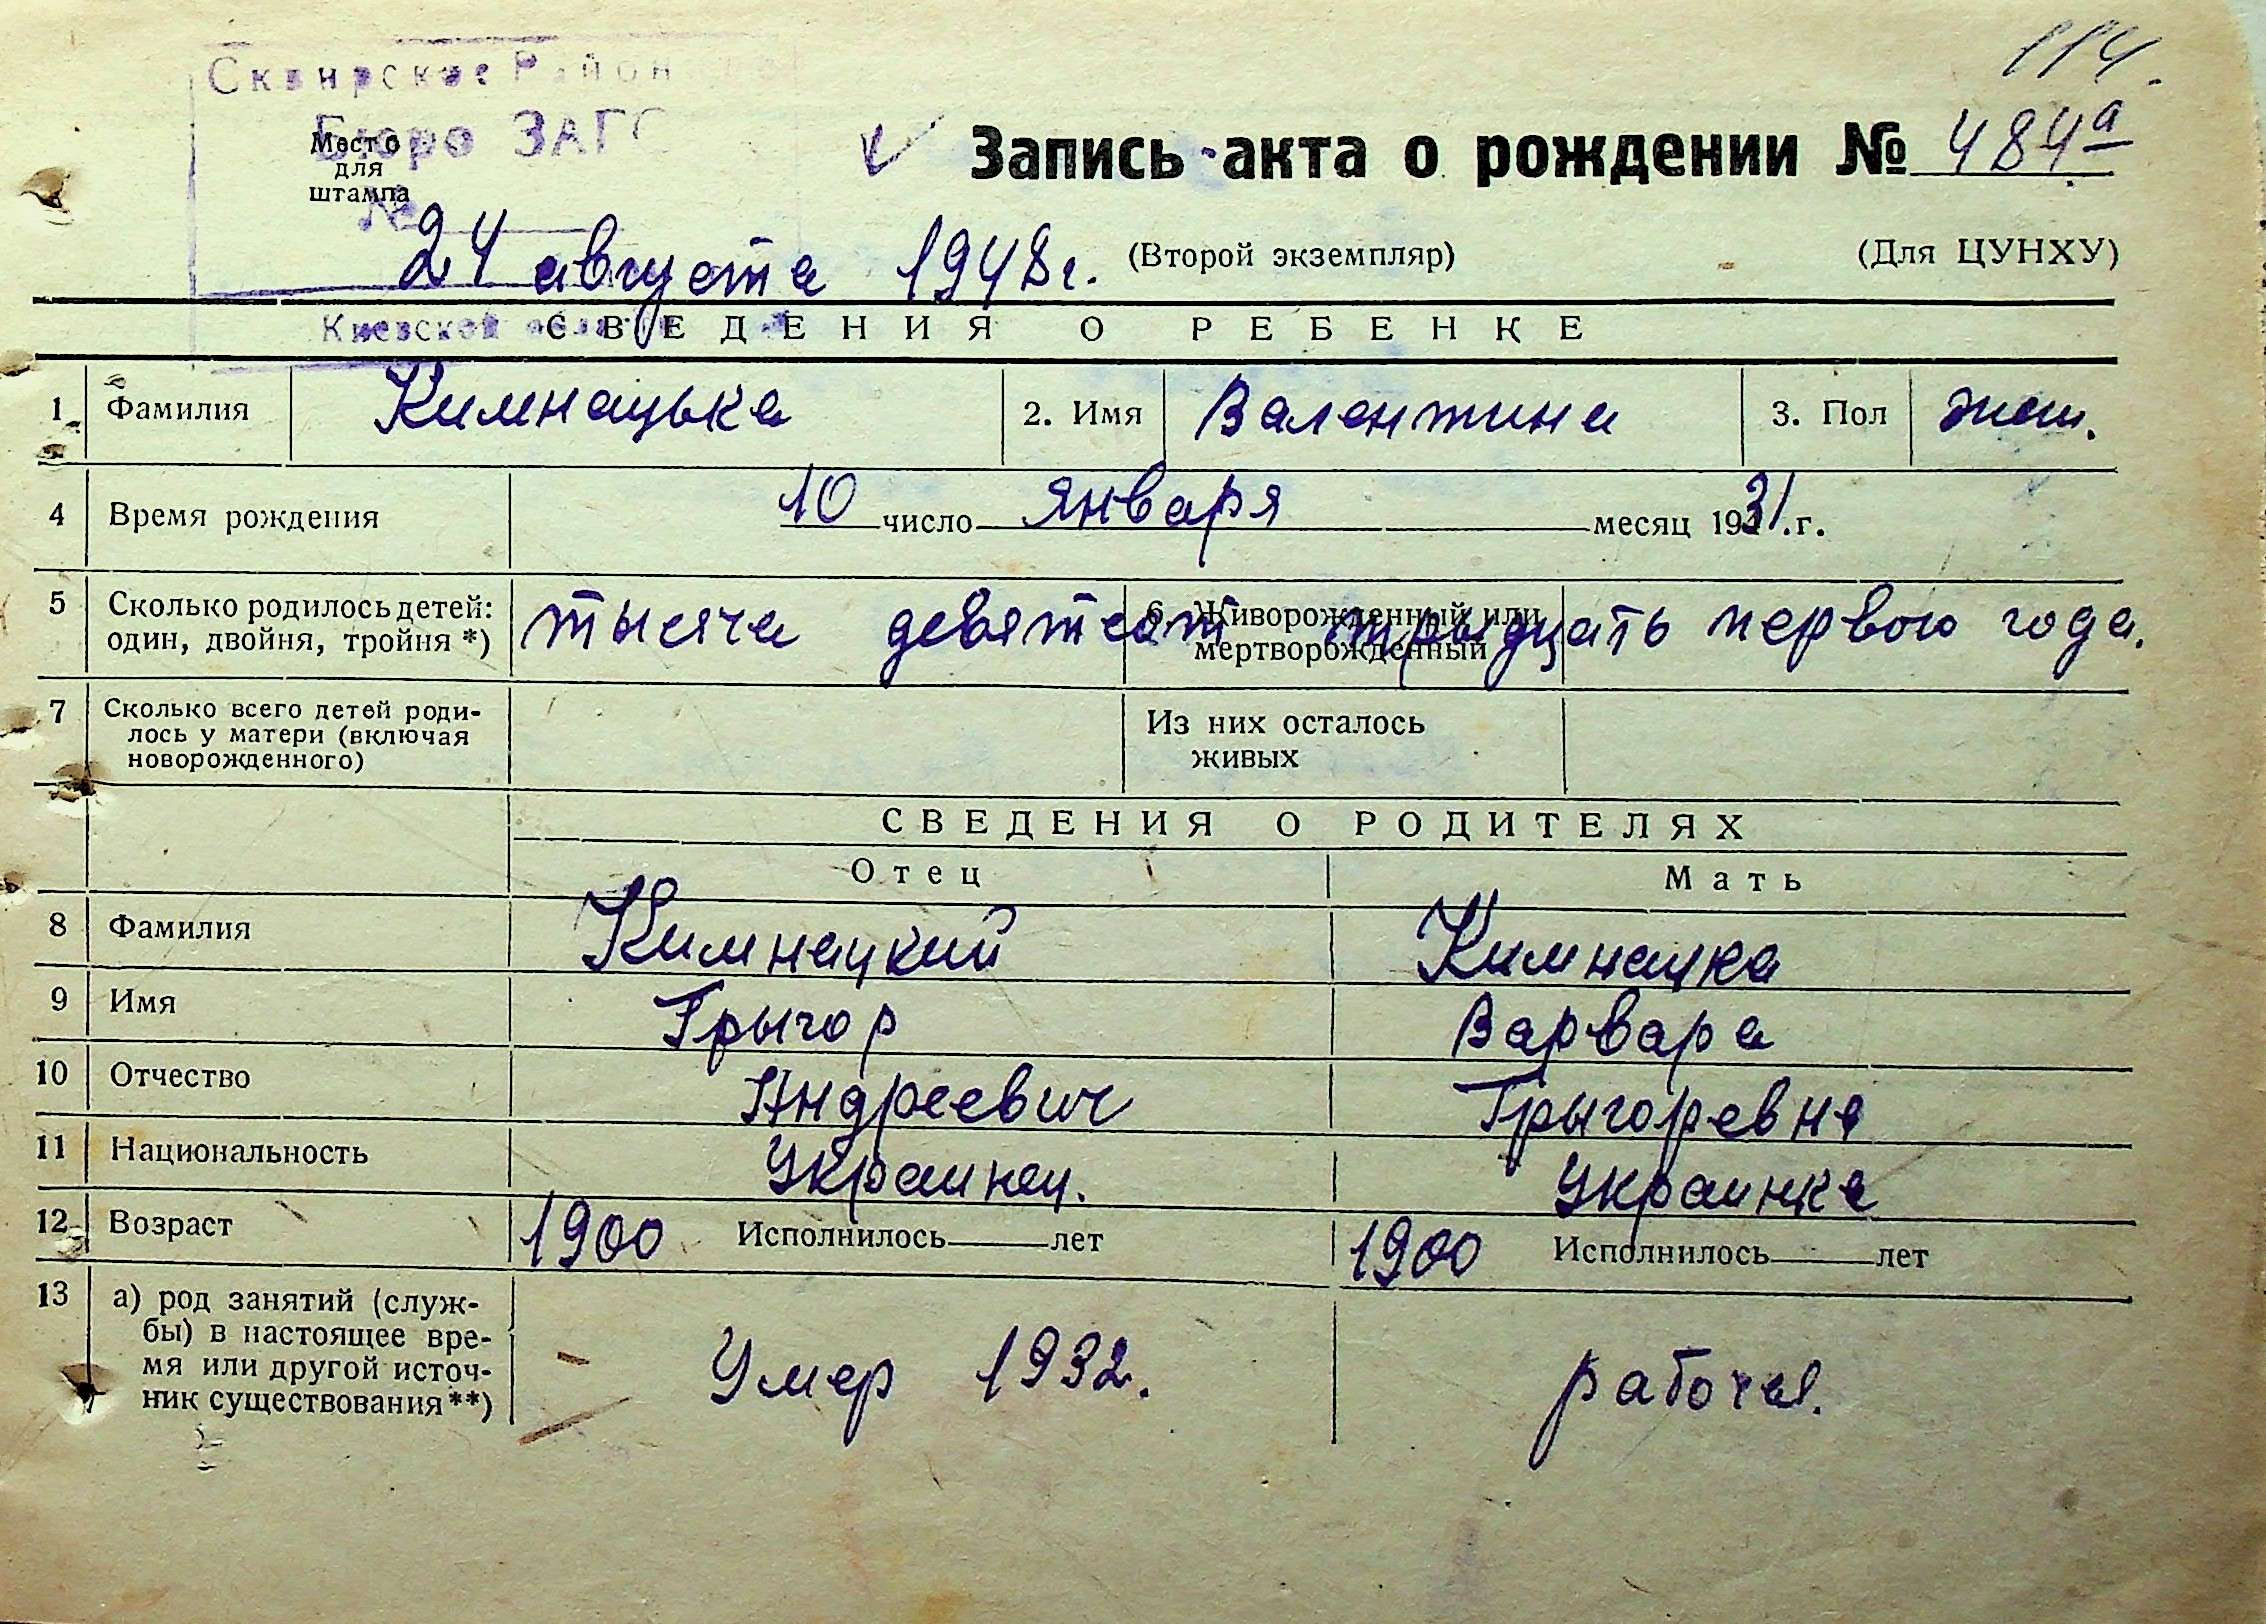 114.
Сквирское Район
Бюро ЗАГС
Место
для
штампа
№
Запись акта о рождении № 484а
24 августа 1948 г.
(Второй экземпляр)
(Для ЦУНХУ)
Киевской
СВЕДЕНИЯ О РЕБЕНКЕ
1 Фамилия Кимнацька 2. Имя Валентина 3. Пол жен.
4 Время рождения 10 число января месяц 1931 г.
5 Сколько родилось детей: один, двойня, тройня *) 6. Живорожденный или мертворожденный
тысяча девятсот трыдцать первого года.
7 Сколько всего детей роди-
лось у матери (включая
новорожденного)
Из них осталось
живых
СВЕДЕНИЯ О РОДИТЕЛЯХ
Отец Мать
8 Фамилия Кимнацкий Кимнацка
9 Имя Грыгор Варвара
10 Отчество Андреевич Грыгоревна
11 Национальность Украинец. Украинка
12 Возраст 1900 Исполнилось лет 1900 Исполнилось лет
13 а) род занятий (служ-
бы) в настоящее вре-
мя или другой источ-
ник существования **)
Умер 1932. рабочая.